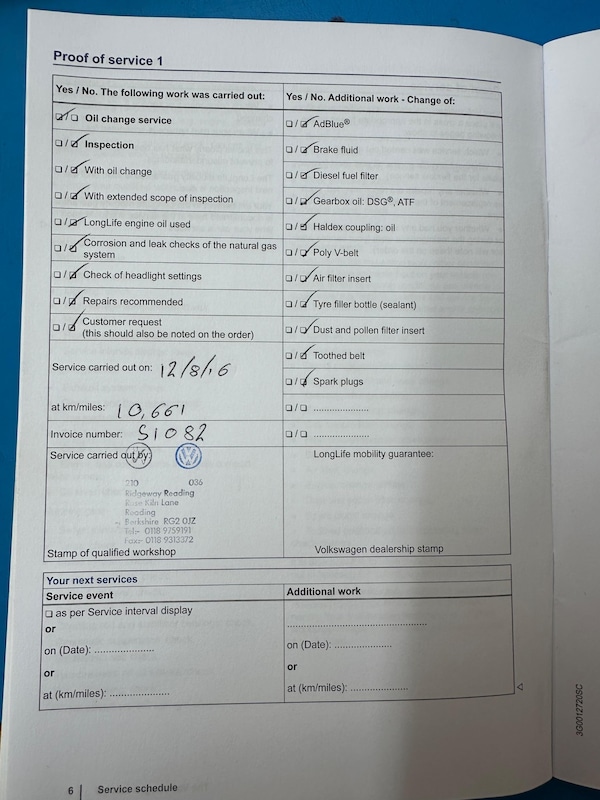 Proof of service 1
Yes / No. The following work was carried out:
☑/☐ Oil change service
☐/☑ Inspection
☐/☑ With oil change
☐/☑ With extended scope of inspection
☐/☑ LongLife engine oil used
☐/☑ Corrosion and leak checks of the natural gas
system
☐/☑ Check of headlight settings
☐/☑ Repairs recommended
☐/☑ Customer request
(this should also be noted on the order)
Service carried out on: 12/8/16
at km/miles: 10,661
Invoice number: S1082
Service carried out by:
210 036
Ridgeway Reading
Rose Kiln Lane
Reading
Berkshire RG2 0JZ
Tel:- 0118 9759191
Fax:- 0118 9313372
Stamp of qualified workshop
Yes / No. Additional work - Change of:
☐/☑ AdBlue®
☐/☑ Brake fluid
☐/☑ Diesel fuel filter
☐/☑ Gearbox oil: DSG®, ATF
☐/☑ Haldex coupling: oil
☐/☑ Poly V-belt
☐/☑ Air filter insert
☐/☑ Tyre filler bottle (sealant)
☐/☑ Dust and pollen filter insert
☐/☑ Toothed belt
☐/☑ Spark plugs
☐/☐ ....................
☐/☐ ....................
LongLife mobility guarantee:
Volkswagen dealership stamp
Your next services
Service event
☐ as per Service interval display
or
on (Date): .....................
or
at (km/miles): .....................
Additional work
..................................................
on (Date): ....................
or
at (km/miles): ....................
3G0012720SC
6 | Service schedule